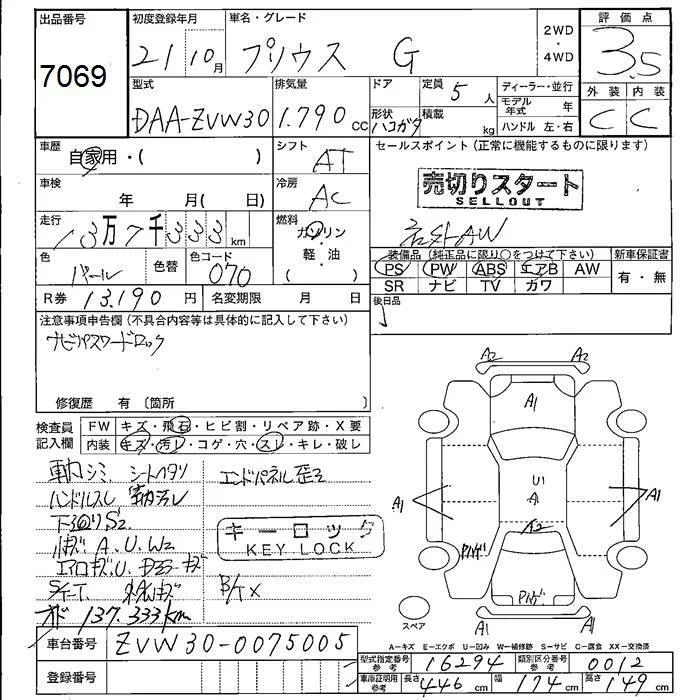 出品番号
7069
初度登録年月
21 10月
車名・グレード
プリウス G
2WD
・
4WD
評価点
3.5
外装 内装
C C
型式
DAA-ZVW30
排気量
1.790 cc
ドア
形状
ハコガタ
定員 5 人
積載 kg
ディーラー・並行
モデル年式 年
ハンドル 左・右
車歴
自家用・( )
シフト
AT
セールスポイント(正常に機能するものに限ります)
売切りスタート
SELLOUT
社外AW
車検
年 月( 日)
冷房
AC
走行
13万7千333km
燃料
ガソリン
・
軽・油
( )
色
パール
色替
色コード
070
装備品(純正品に限り○をつけて下さい)
PS PW ABS エアB AW
SR ナビ TV ガワ
新車保証書
有・無
R券 13,190 円
名変期限 月 日
後日品
注意事項申告欄(不具合内容等は具体的に記入して下さい)
ナビパスワードロック
修復歴 有(箇所 )
検査員
記入欄
FW キズ・飛石・ヒビ割・リペア跡・X要
内装 キズ・汚レ・コゲ・穴・スレ・キレ・破レ
シートヘタリ
エンドパネル歪ミ
ハンドルスレ
下廻りS2
A.U.W2
エアロキズU.
キーロック
KEY LOCK
オド 137.333km
車台番号
ZVW30-0075005
登録番号
A2 A2
A1
U1
A
A2
A1 A1
A1 A1
スペア
A=キズ E=エクボ U=凹み W=補修跡 S=サビ C=腐食 XX=交換済
型式指定番号
参考
16294
類別区分番号
参考
0012
車庫証明用
参考
長さ 446 cm
幅 174 cm
高さ 149 cm